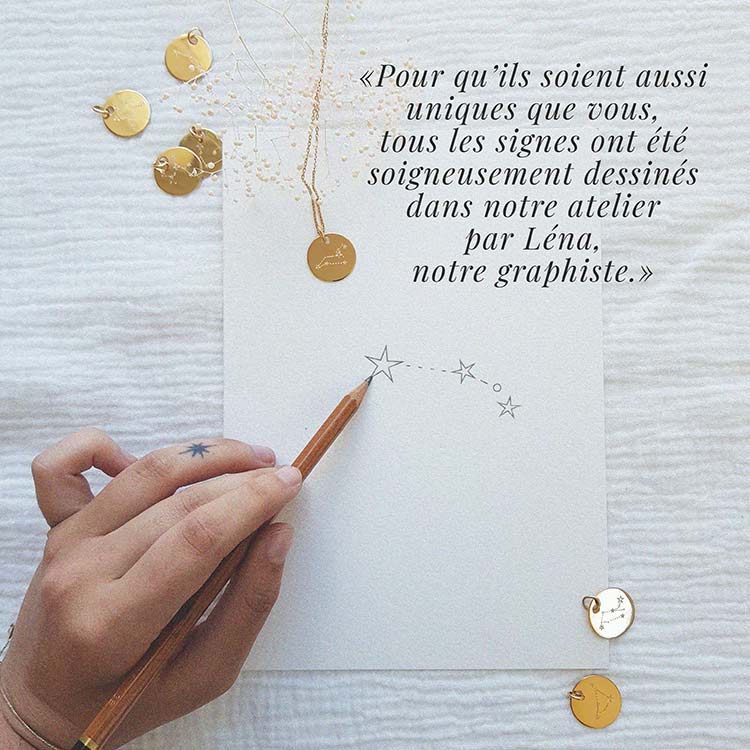 «Pour qu’ils soient aussi
uniques que vous,
tous les signes ont été
soigneusement dessinés
dans notre atelier
par Léna,
notre graphiste.»